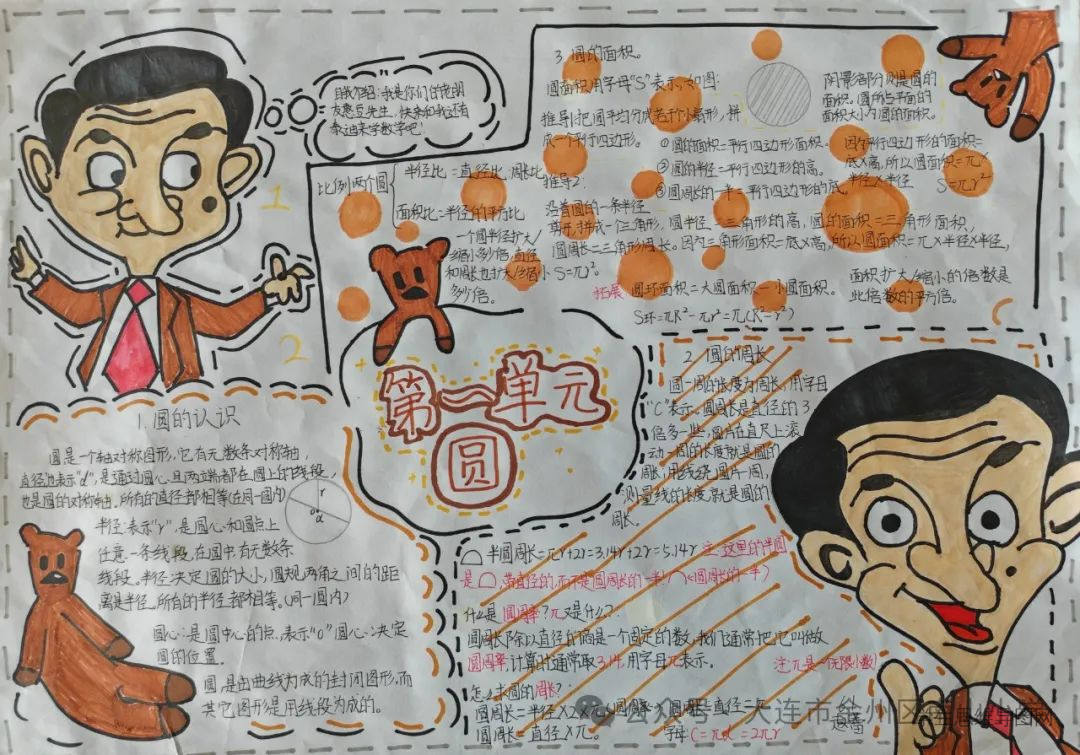 自我介绍:我是你们的老朋
友憨豆先生,快来和我还有
泰迪来学数字吧!
1
2
比例:两个圆
半径比=直径比、周长比
面积比=半径的平方比
一个圆半径扩大/
缩小多少倍,直径
和周长也扩大/缩小
多少倍。
3.圆的面积。
圆面积用字母“S”表示,如图:
阴影部分则是圆的
面积。圆所占平面的
面积大小为圆的面积。
推导1:把圆平均分成若干个小扇形,拼
成一个平行四边形。
①圆的面积=平行四边形面积。
②圆的半径=平行四边形的高。
③圆周长的一半=平行四边形的底。
因为平行四边形的面积=
底×高,所以圆面积=π×
半径×半径
S=πr²
推导2:
沿着圆的一条半径
剪开,拼成一个三角形,圆半径=三角形的高,圆的面积=三角形面积,
圆周长=三角形周长。因为三角形面积=底×高,所以圆面积=π×半径×半径,
S=πr²。
拓展:圆环面积=大圆面积-小圆面积。
S环=πR²-πr²=π(R²-r²)
面积扩大/缩小的倍数是
此倍数的平方倍。
第一单元
圆
1.圆的认识
圆是一个轴对称图形,它有无数条对称轴,
直径:表示“d”,是通过圆心,且两端都在圆上的线段,
也是圆的对称轴,所有的直径都相等(在同一圆内)
半径:表示“r”是圆心和圆点上
任意一条线段,在圆中有无数条
线段。半径决定圆的大小,圆规两角之间的距
离是半径,所有的半径都相等。(同一圆内)
圆心:是圆中心的点,表示“o”圆心:决定
圆的位置。
圆,是由曲线为成的封闭图形,而
其它图形是用线段为成的。
r
o
d
2.圆的周长
圆一周的长度为周长,用字母
“C”表示。圆周长是直径的3
倍多一些,圆片在直尺上滚
动一周的长度就是圆的
周长,用线绕圆片一周,
测量线的长度,就是圆的
周长。
半圆周长=πr+2r=3.14r+2r=5.14r 注:这里的半圆
是,带直径的,而不是圆周长的一半!(圆周长的一半)
什么是圆周率?π又是什么?:
圆周长除以直径的商是一个固定的数,我们通常把它叫做
圆周率,计算时通常取3.14.用字母π表示。
注:π是一个无限小数!
怎么求圆的周长?:
圆周长=半径×2×π
圆周长=直径×π。
字母C=πd=2πr
公众号·大连市金州区